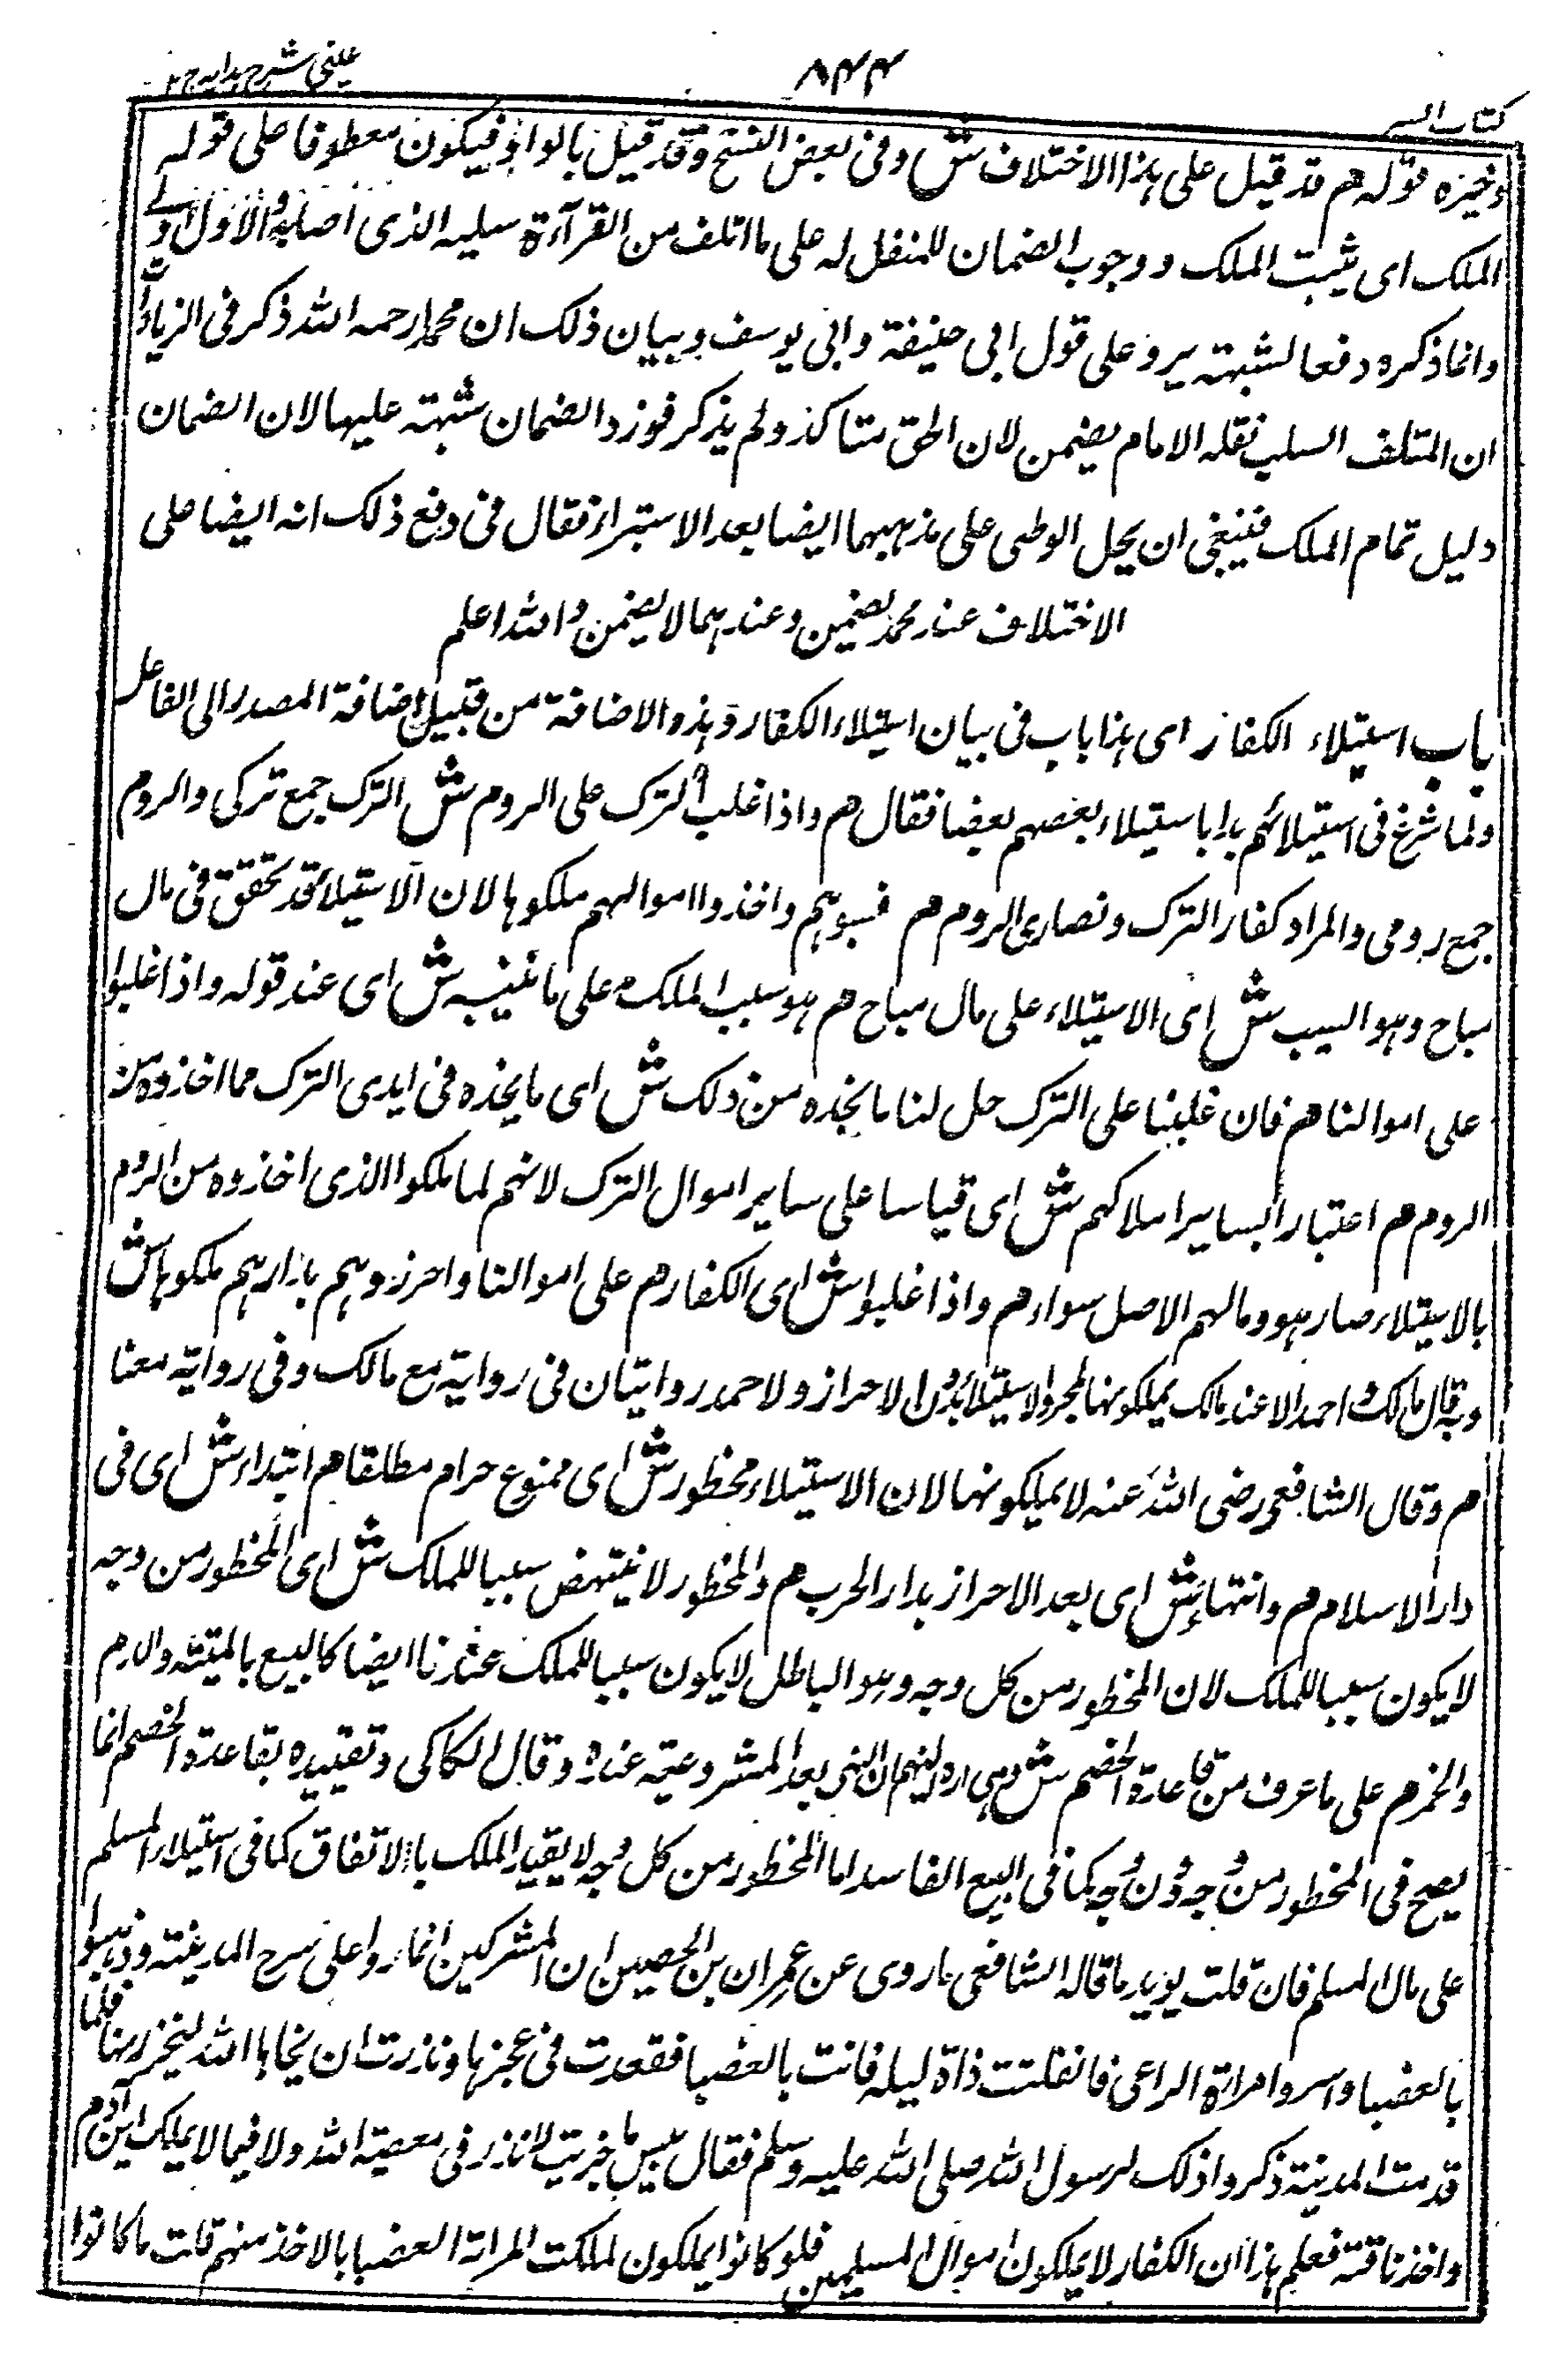 عینی شرح ہدایہ ج ۲
۸۴۴
کتاب السیر
وغیرہ قوله م قد قیل علی ہذا الاختلاف ش وفی بعض النسخ وقد قیل بالواو فیکون معطوفا علی قوله
الملک ای یثبت الملک ووجوب الضمان للمنفل له علی ما اتلف من سلبه الذی اصابه والاول اولی
وانما ذکره دفعا لشبهته یرد علی قول ابی حنیفة وابی یوسف وبیان ذلک ان محمدا رحمه الله ذکر فی الزیادات
ان المتلف السلب نفله الامام یضمن لان الحق متاکد ولم یذکر فورد الضمان شبهته علیہا لان الضمان
دلیل تمام الملک فینبغی ان یحل الوطی علی مذہبہما ایضا بعد الاستبراء فقال فی دفع ذلک انه ایضا علی
الاختلاف عند محمد یضمن وعندہما لا یضمن والله اعلم
باب استیلاء الکفار ای ہذا باب فی بیان استیلاء الکفار وہذه الاضافة من قبیل اضافة المصدر الی الفاعل
ولما شرع فی استیلائهم بدا باستیلاء بعضهم بعضا فقال م واذا غلب الترک علی الروم ش الترک جمع ترکی والروم
جمع رومی والمراد کفار الترک ونصاری الروم م فسبوہم واخذوا اموالهم ملکوہا لان الاستیلاء قد تحقق فی مال
مباح وہو السبب ش ای الاستیلاء علی مال مباح م ہو سبب الملک م علی ما نبینه ش ای عند قوله واذا غلبوا
علی اموالنا م فان غلبنا علی الترک حل لنا ما نجده من ذلک ش ای ما نجده فی ایدی الترک مما اخذوه من
الروم م اعتبارا بسایر املاکهم ش ای قیاسا علی سایر اموال الترک لانهم لما ملکوا الذی اخذوه من الروم
بالاستیلاء صار ہو ومالهم الاصل سواء م واذا غلبوا ش ای الکفار م علی اموالنا واحرزوہم بدارہم ملکوہا ش
وبه قال مالک واحمد الا عند مالک یملکونها بمجرد الاستیلاء بدون الاحراز ولاحمد روایتان فی روایة مع مالک وفی روایة معنا
م وقال الشافعی رضی الله عنه لا یملکونها لان الاستیلاء محظور ش ای ممنوع حرام مطلقا م ابتداء ش ای فی
دار الاسلام م وانتهاء ش ای بعد الاحراز بدار الحرب م والمحظور لا ینتهض سببا للملک ش ای المحظور من وجه
لا یکون سببا للملک لان المحظور من کل وجه وہو الباطل لا یکون سببا للملک عندنا ایضا کالبیع بالمیتة والدم
والخمر م علی ما عرف من قاعدة الخصم ش وہی ان النهی بعد المشروعیة عنده وقال الکاکی وتقییده بقاعدة الخصم انما
یصح فی المحظور من وجه دون وجه کما فی البیع الفاسد اما المحظور من کل وجه لا یفید الملک بالاتفاق کما فی استیلاء المسلم
علی مال المسلم فان قلت یوید ما قاله الشافعی ما روی عن عمران بن الحصین ان المشرکین اغاروا علی سرح المدینة وذہبوا
بالعضبا واسروا مراة الراعی فانفلتت ذاة لیله فاتت بالعضبا فقعدت فی عجزہا ونذرت ان نجاہا الله لینحرنها فلما
قدمت المدینة ذکروا ذلک لرسول الله صلی الله علیه وسلم فقال بیس ما جزیت لا نذر فی معصیة الله ولا فیما لا یملک ابن آدم
واخذ ناقته فعلم بهذا ان الکفار لا یملکون اموال المسلمین فلو کانوا یملکون لملکت المراة العضبا بالاخذ منهم قلت ما کانوا